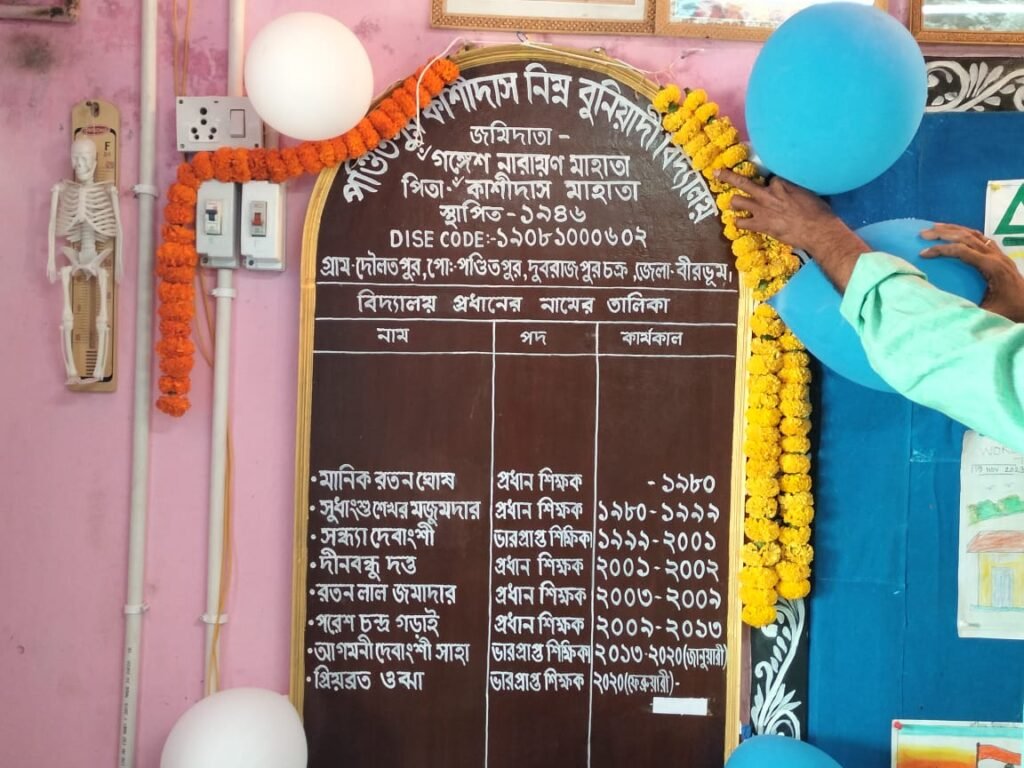 পণ্ডিতপুর কাশীদাস নিম্ন বুনিয়াদী বিদ্যালয়
জমিদাতা -
ঁগঙ্গেশ নারায়ণ মাহাতা
পিতা-ঁকাশীদাস মাহাতা
স্থাপিত - ১৯৪৬
DISE CODE:-১৯০৮১০০০৬০২
গ্রাম-দৌলতপুর, পো:-পণ্ডিতপুর, দুবরাজপুর চক্র, জেলা-বীরভূম।
বিদ্যালয় প্রধানের নামের তালিকা
নাম পদ কার্যকাল
• মানিক রতন ঘোষ প্রধান শিক্ষক - ১৯৮০
• সুধাংশু শেখর মজুমদার প্রধান শিক্ষক ১৯৮০-১৯৯৯
• সন্ধ্যা দেবাংশী ভারপ্রাপ্ত শিক্ষিকা ১৯৯৯-২০০১
• দীনবন্ধু দত্ত প্রধান শিক্ষক ২০০১-২০০২
• রতন লাল জমাদার প্রধান শিক্ষক ২০০৩-২০০৯
• পরেশ চন্দ্র গড়াই প্রধান শিক্ষক ২০০৯-২০১৩
• আগমনী দেবাংশী সাহা ভারপ্রাপ্ত শিক্ষিকা ২০১৩-২০২০(জানুয়ারী)
• প্রিয়ব্রত ওঝা ভারপ্রাপ্ত শিক্ষক ২০২০(ফেব্রুয়ারী)-